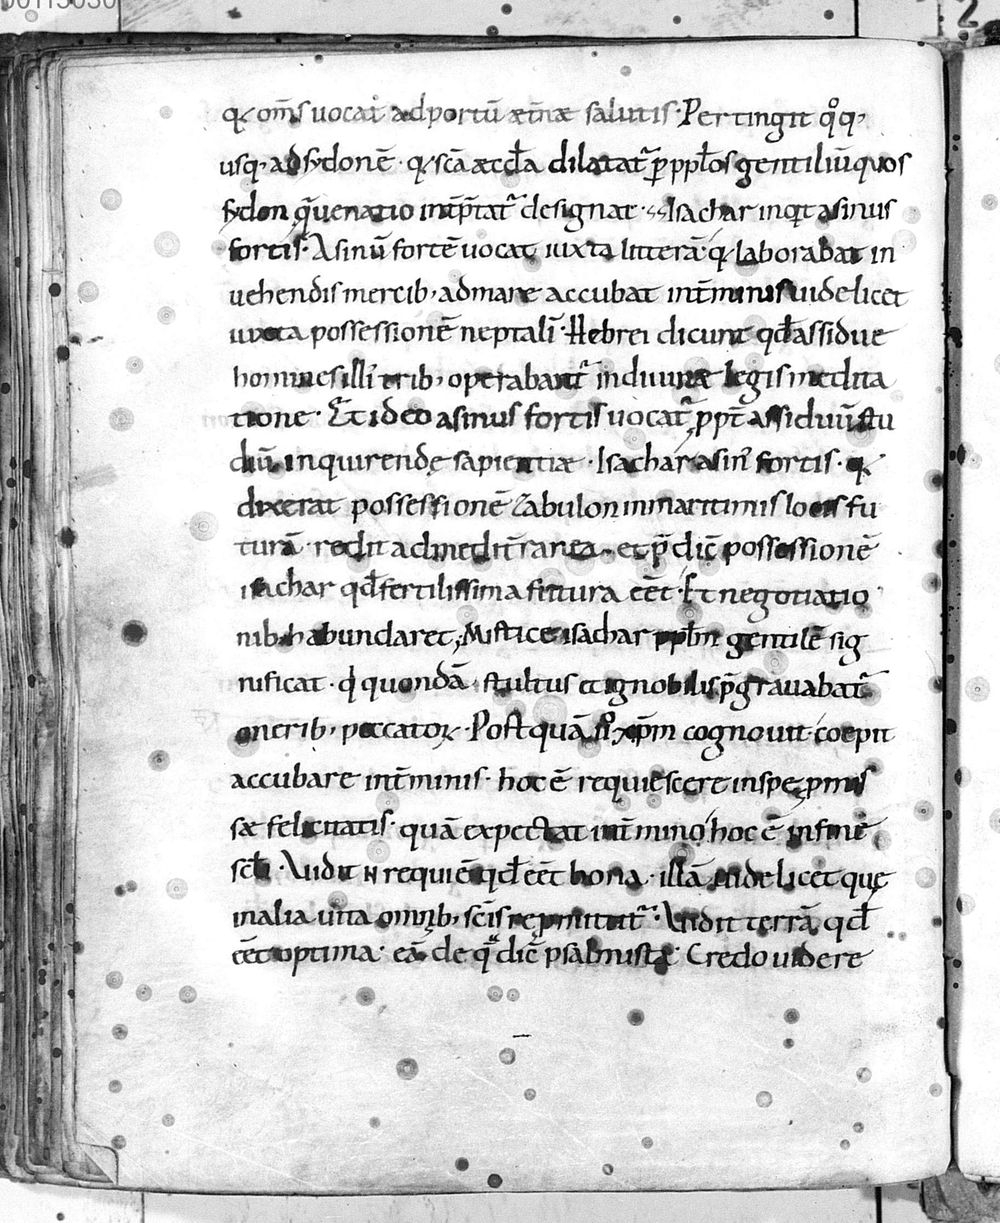 00115030
2
qꝛ om̄s uocat ad portū æt̄næ salutis· Pertingit qͦq,
usq, ad sydonē· qꝛ scā æccl̄a dilatat᷑ ꝑ ppl̄os gentiliū quos
sydon q̄ uenatio int̄p̄tat᷑ designat· Isachar inqt asinus
fortis· Asinū fortē uocat iuxta litterā· qꝛ laborabat in
uehendis mercib, ad mare accubat int̄minis uidelicet
iuxta possessionē neptali· Hebrei dicunt qd̄ assidue
homines illi᾿ trib, operabant᷑ in diuinæ legis medita
tione· Et ideo asinus fortis uocat᷑ ꝓpt̄ assiduū stu
diū inquirendę sapientiæ· Isachar asin᾿ fortis· qꝛ
dixerat possessionē Zabulon in maritimis locis fu
turā· redit ad medit̄ranea· et p̄dic̄ possessionē
isachar qd̄ fertilissima futura eēt· Et negotiatio
nib, habundaret; Mistice isachar ppl̄m gentilē sig
nificat· q̇ quondā stultus et ignobilis p̄grauabat᷑
onerib, peccatoꝝ· Postquā u̇ xp̄m cognouit· coepit
accubare int̄minis· hoc ē requiescere in spe ꝓmis
sæ felicitatis· quā expectat in t̄mino hoc ē in fine
scl̄i· Vidit ɴ requiē qd̄ eēt bona· illā uidelicet quę
in alia uita omib, scīs repmittit᷑· Vidit terrā qd̄
eēt optima· eā de qͣ dic̄ psalmista· Credo uidere